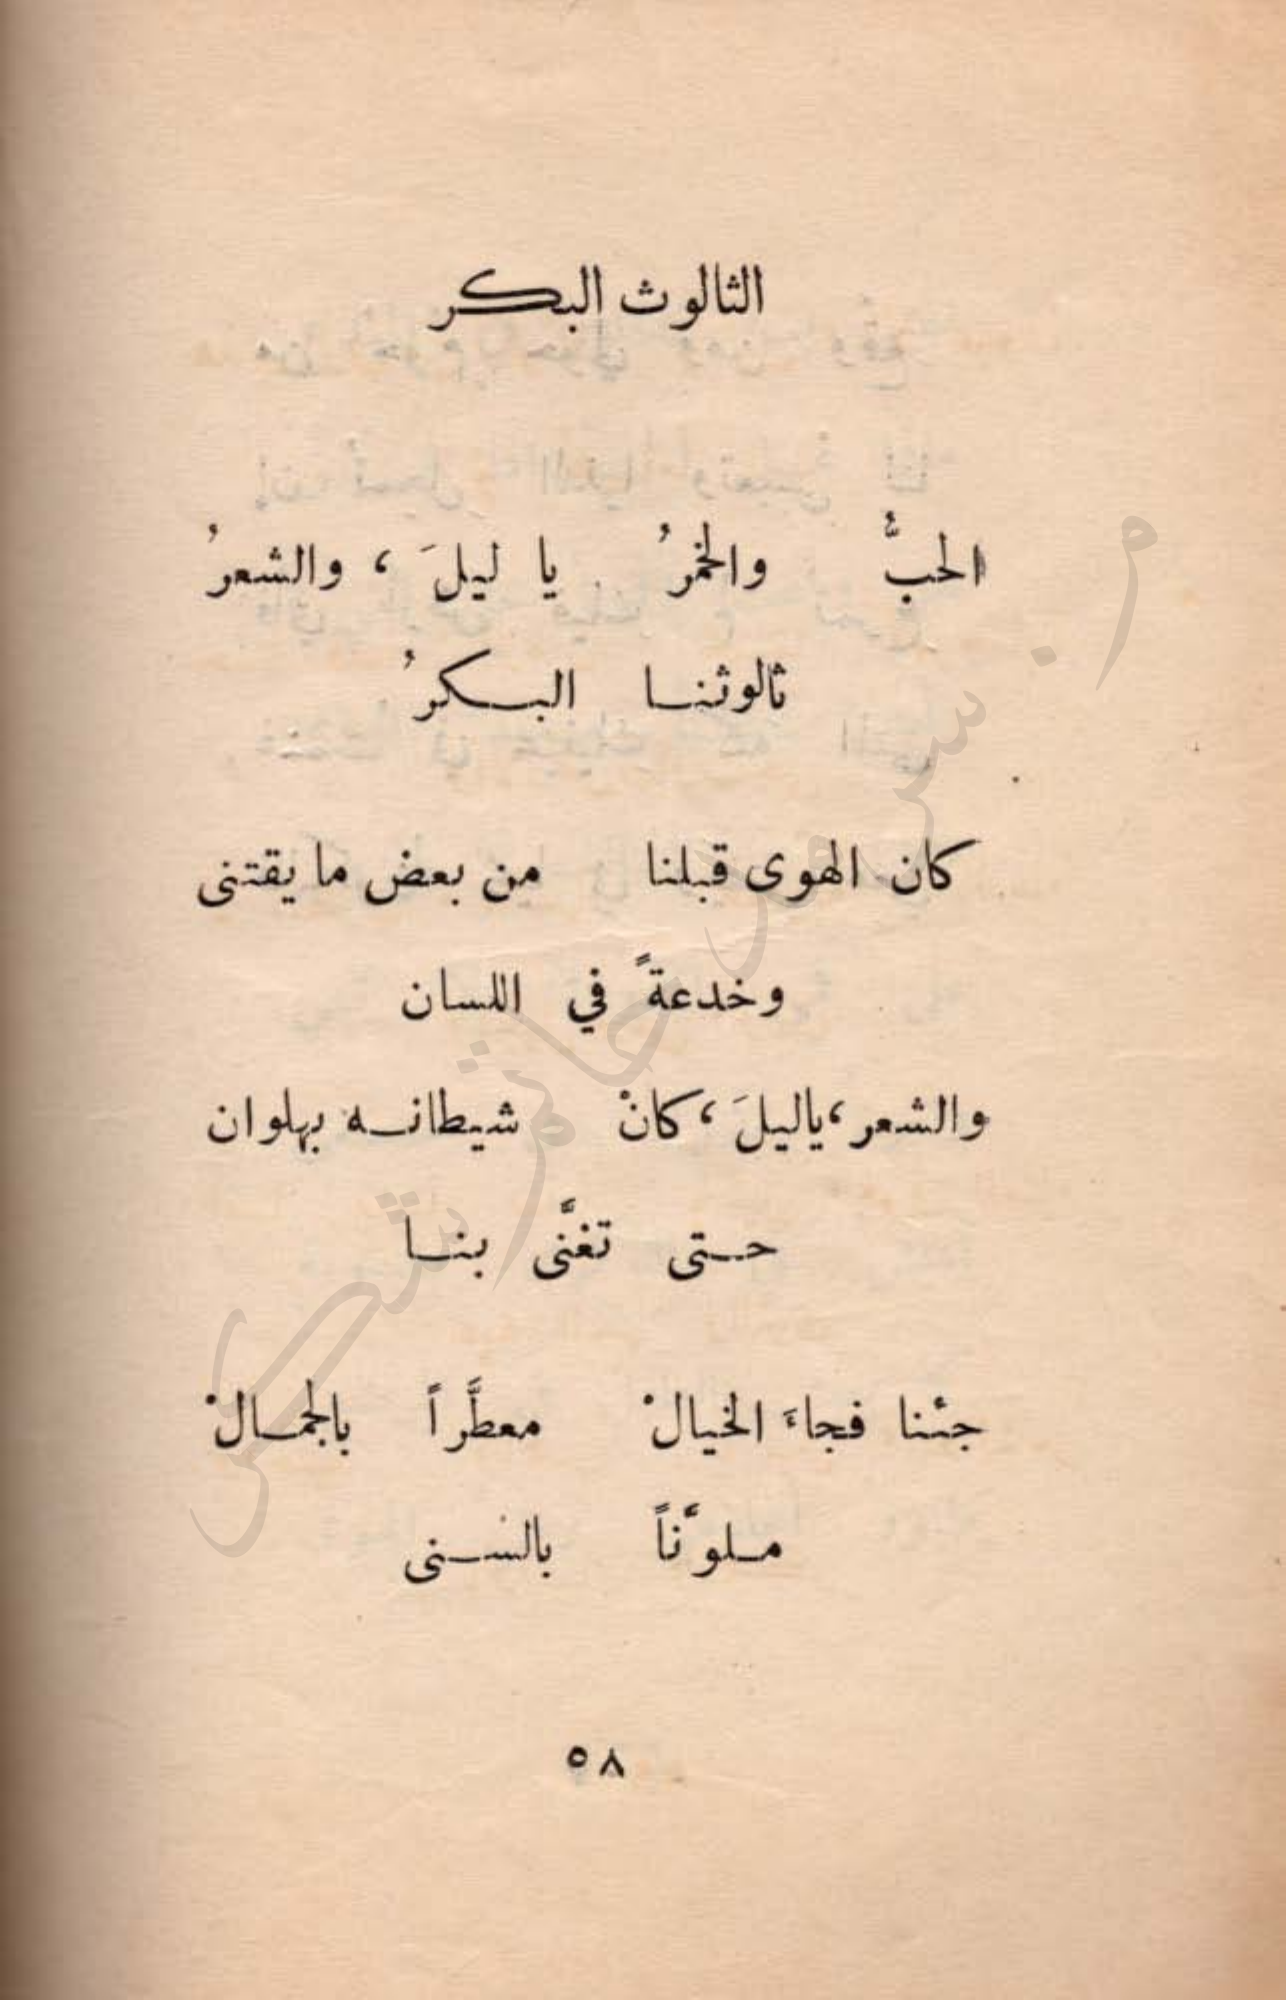 الثالوث البكر
الحبُّ والخمرُ يا ليلَ ، والشعرُ
ثالوثنا البكرُ
كان الهوى قبلنا من بعض ما يقتنى
وخدعةً في اللسان
والشعر ، ياليلَ ، كانْ شيطانه بهلوان
حتى تغنَّى بنا
جئنا فجاءَ الخيالْ معطَّراً بالجمالْ
ملوَّناً بالسنى
٥٨